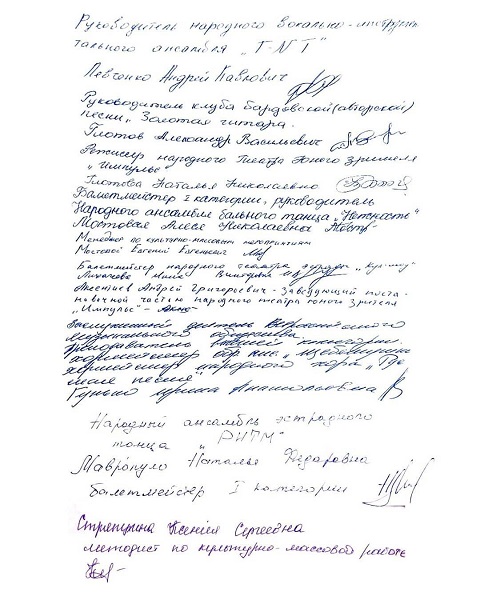 Руководитель народного вокально-инструмен
тального ансамбля "T-N-T"
Левченко Андрей Павлович
Руководитель клуба бардовской (авторской)
песни "Золотая гитара.
Глотов Александр Васильевич
Режиссер народного театра юного зрителя
"Импульс"
Глотова Наталья Николаевна
Балетмейстер I категории, руководитель
Народного ансамбля бального танца "Нежность"
Мостовая Николаевна
Менеджер по культурно-массовым мероприятиям
Мостовой Евгений Евгеньевич
Балетмейстер народного театра
Аксентьев Андрей Григорьевич - Заведующий поста-
новочной частью народного театра юного зрителя
"Импульс" -
Заслуженный деятель Всероссийского
музыкального общества.
Преподаватель высшей категории.
хормейстер
хормейстер народного хора "Где
песня"
Гунько Ирина Анатольевна
Народный ансамбль эстрадного
танца "РИТМ"
Мавропуло Наталья Фёдоровна
балетмейстер I категории
Ксения Сергеевна
методист по культурно-массовой работе